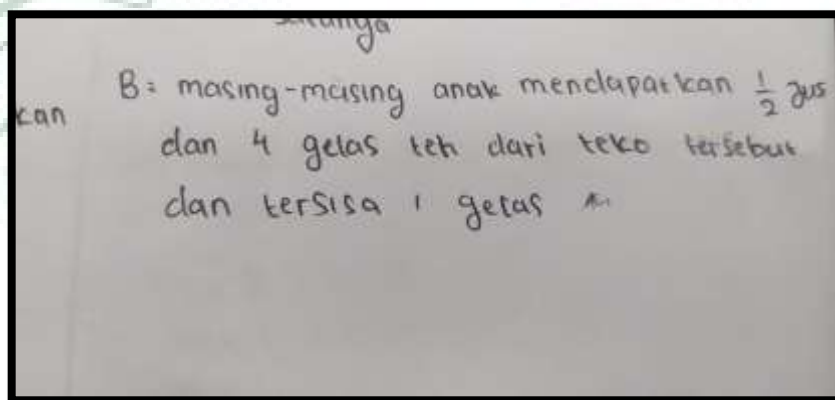 B: masing-masing anak mendapatkan 1/2 jus
kan
dan 4 gelas teh dari teko tersebut
dan tersisa 1 gelas